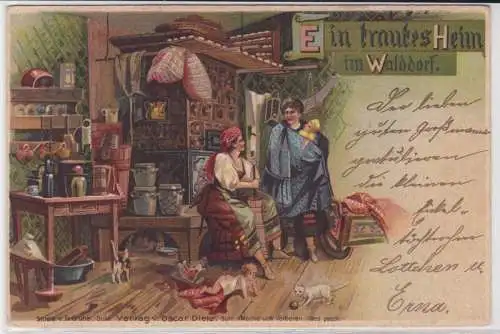 Ein trautes Heim
im Walddorf.
Der lieben
guten Großmama
gratulieren
die kleinen
Enkel-
Lottchen u.
Erna.
Verlag v. Oscar Dietz,